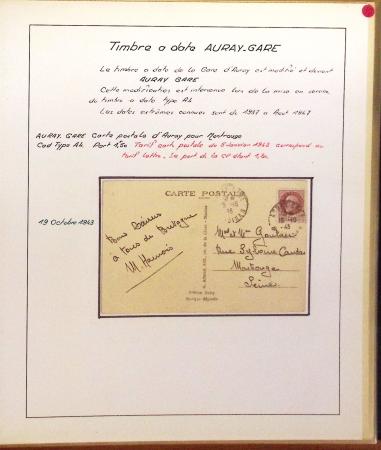 Timbre a date AURAY-GARE
Le timbre a date de la Gare d'Auray est modifié et devient
AURAY GARE
Cette modification est intervenue lors de la mise en service
du timbre a date type A4
Les dates extrêmes connues sont de 1937 a Aout 1947
AURAY. GARE Carte postale d'Auray pour Montrouge
Cad Type A4. Port 1,50 Tarif carte postale du 5 Janvier 1942 correspond au
tarif lettre. Le port de la CP étant 1,20
19 Octobre 1943
CARTE POSTALE
Bons Baisers
à tous de Bretagne
M. Hamois
Mr et Mme Gautier
Rue Sylvine Candas
Montrouge
Seine